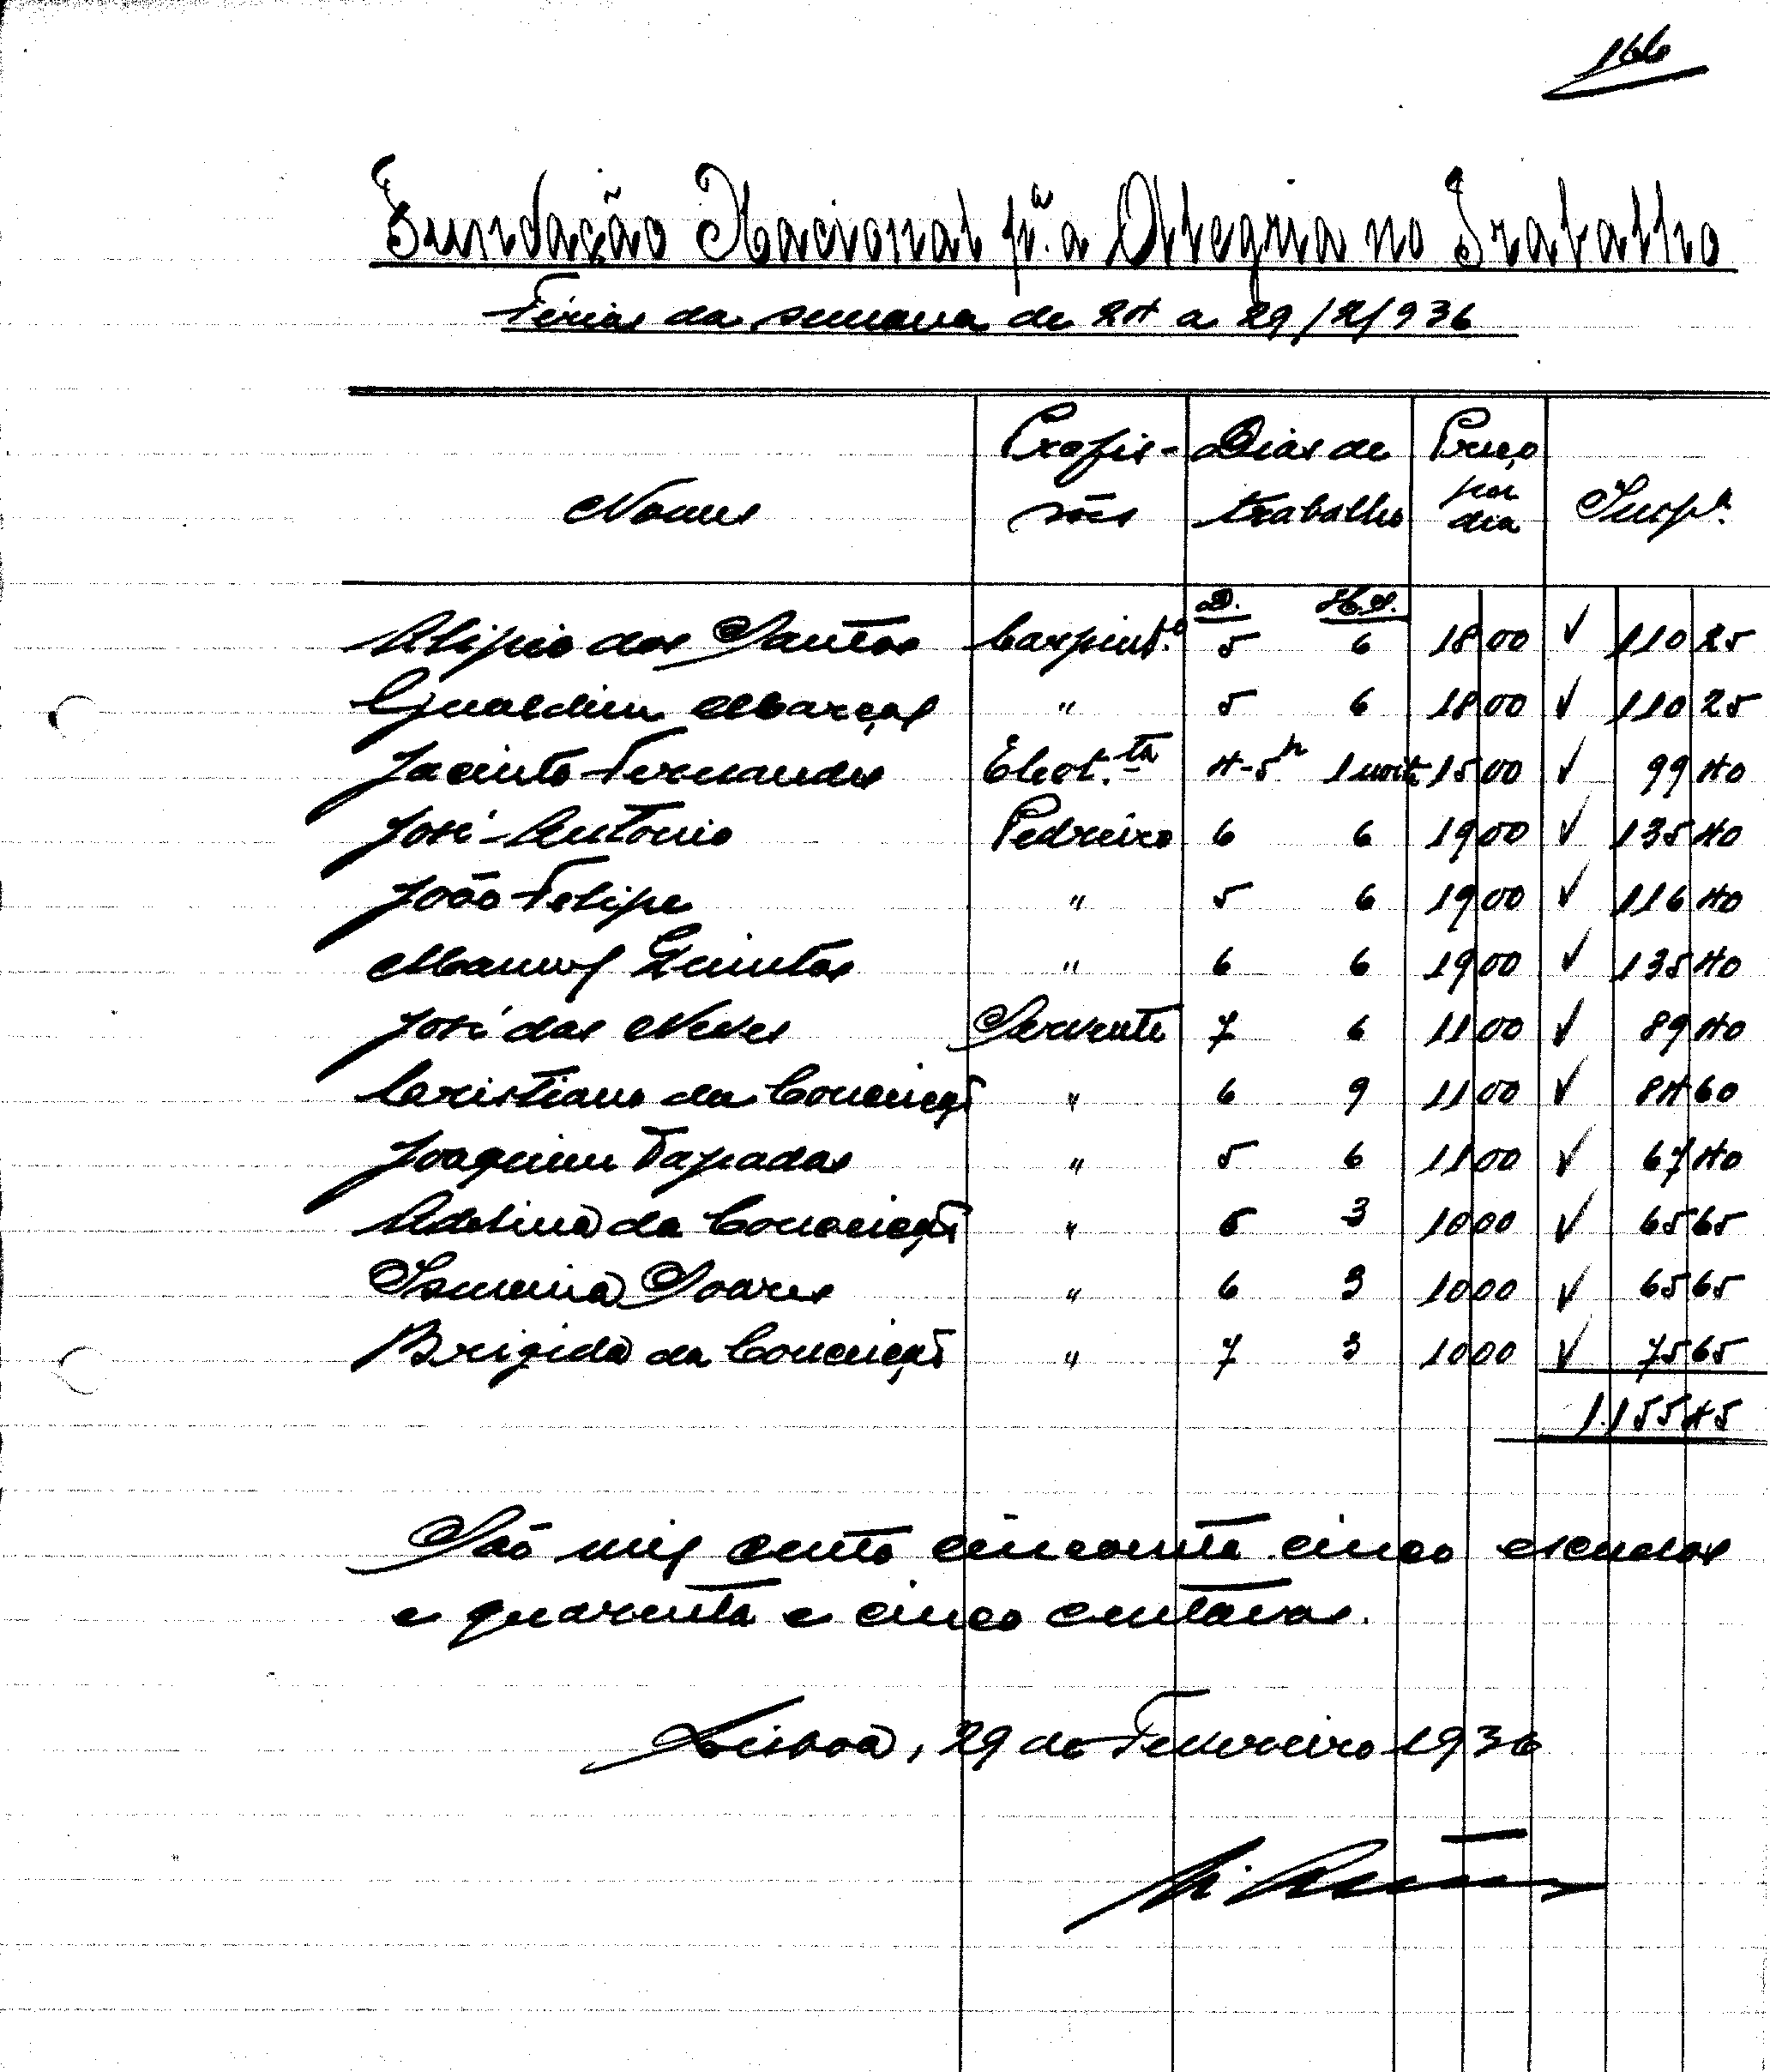 166
Fundação Nacional p.ª a Alegria no Trabalho
Férias da semana de 24 a 29/2/936
Nomes Profis- sões Dias de trabalho Preço por dia Imp.ª
D. H.S.
Alipio dos Santos Carpint.º 5 6 18 00 ✓ 110 25
Gualdim Marçal " 5 6 18 00 ✓ 110 25
Jacinto Fernandes Elect.ta 4-5h 1 noite 15 00 ✓ 99 40
José Antonio Pedreiro 6 6 19 00 ✓ 135 40
João Felipe " 5 6 19 00 ✓ 116 40
Manuel Quintas " 6 6 19 00 ✓ 135 40
José das Neves Servente 7 6 11 00 ✓ 89 40
Cristiano da Conceição " 6 9 11 00 ✓ 84 60
Joaquim Tapadas " 5 6 11 00 ✓ 67 40
Adelina da Conceição " 6 3 10 00 ✓ 65 65
Ismenia Soares " 6 3 10 00 ✓ 65 65
Brigida da Conceição " 7 3 10 00 ✓ 75 65
1.155 45
São mil cento cincoenta cinco escudos
e quarenta e cinco centavos.
Lisboa, 29 de Fevereiro 1936